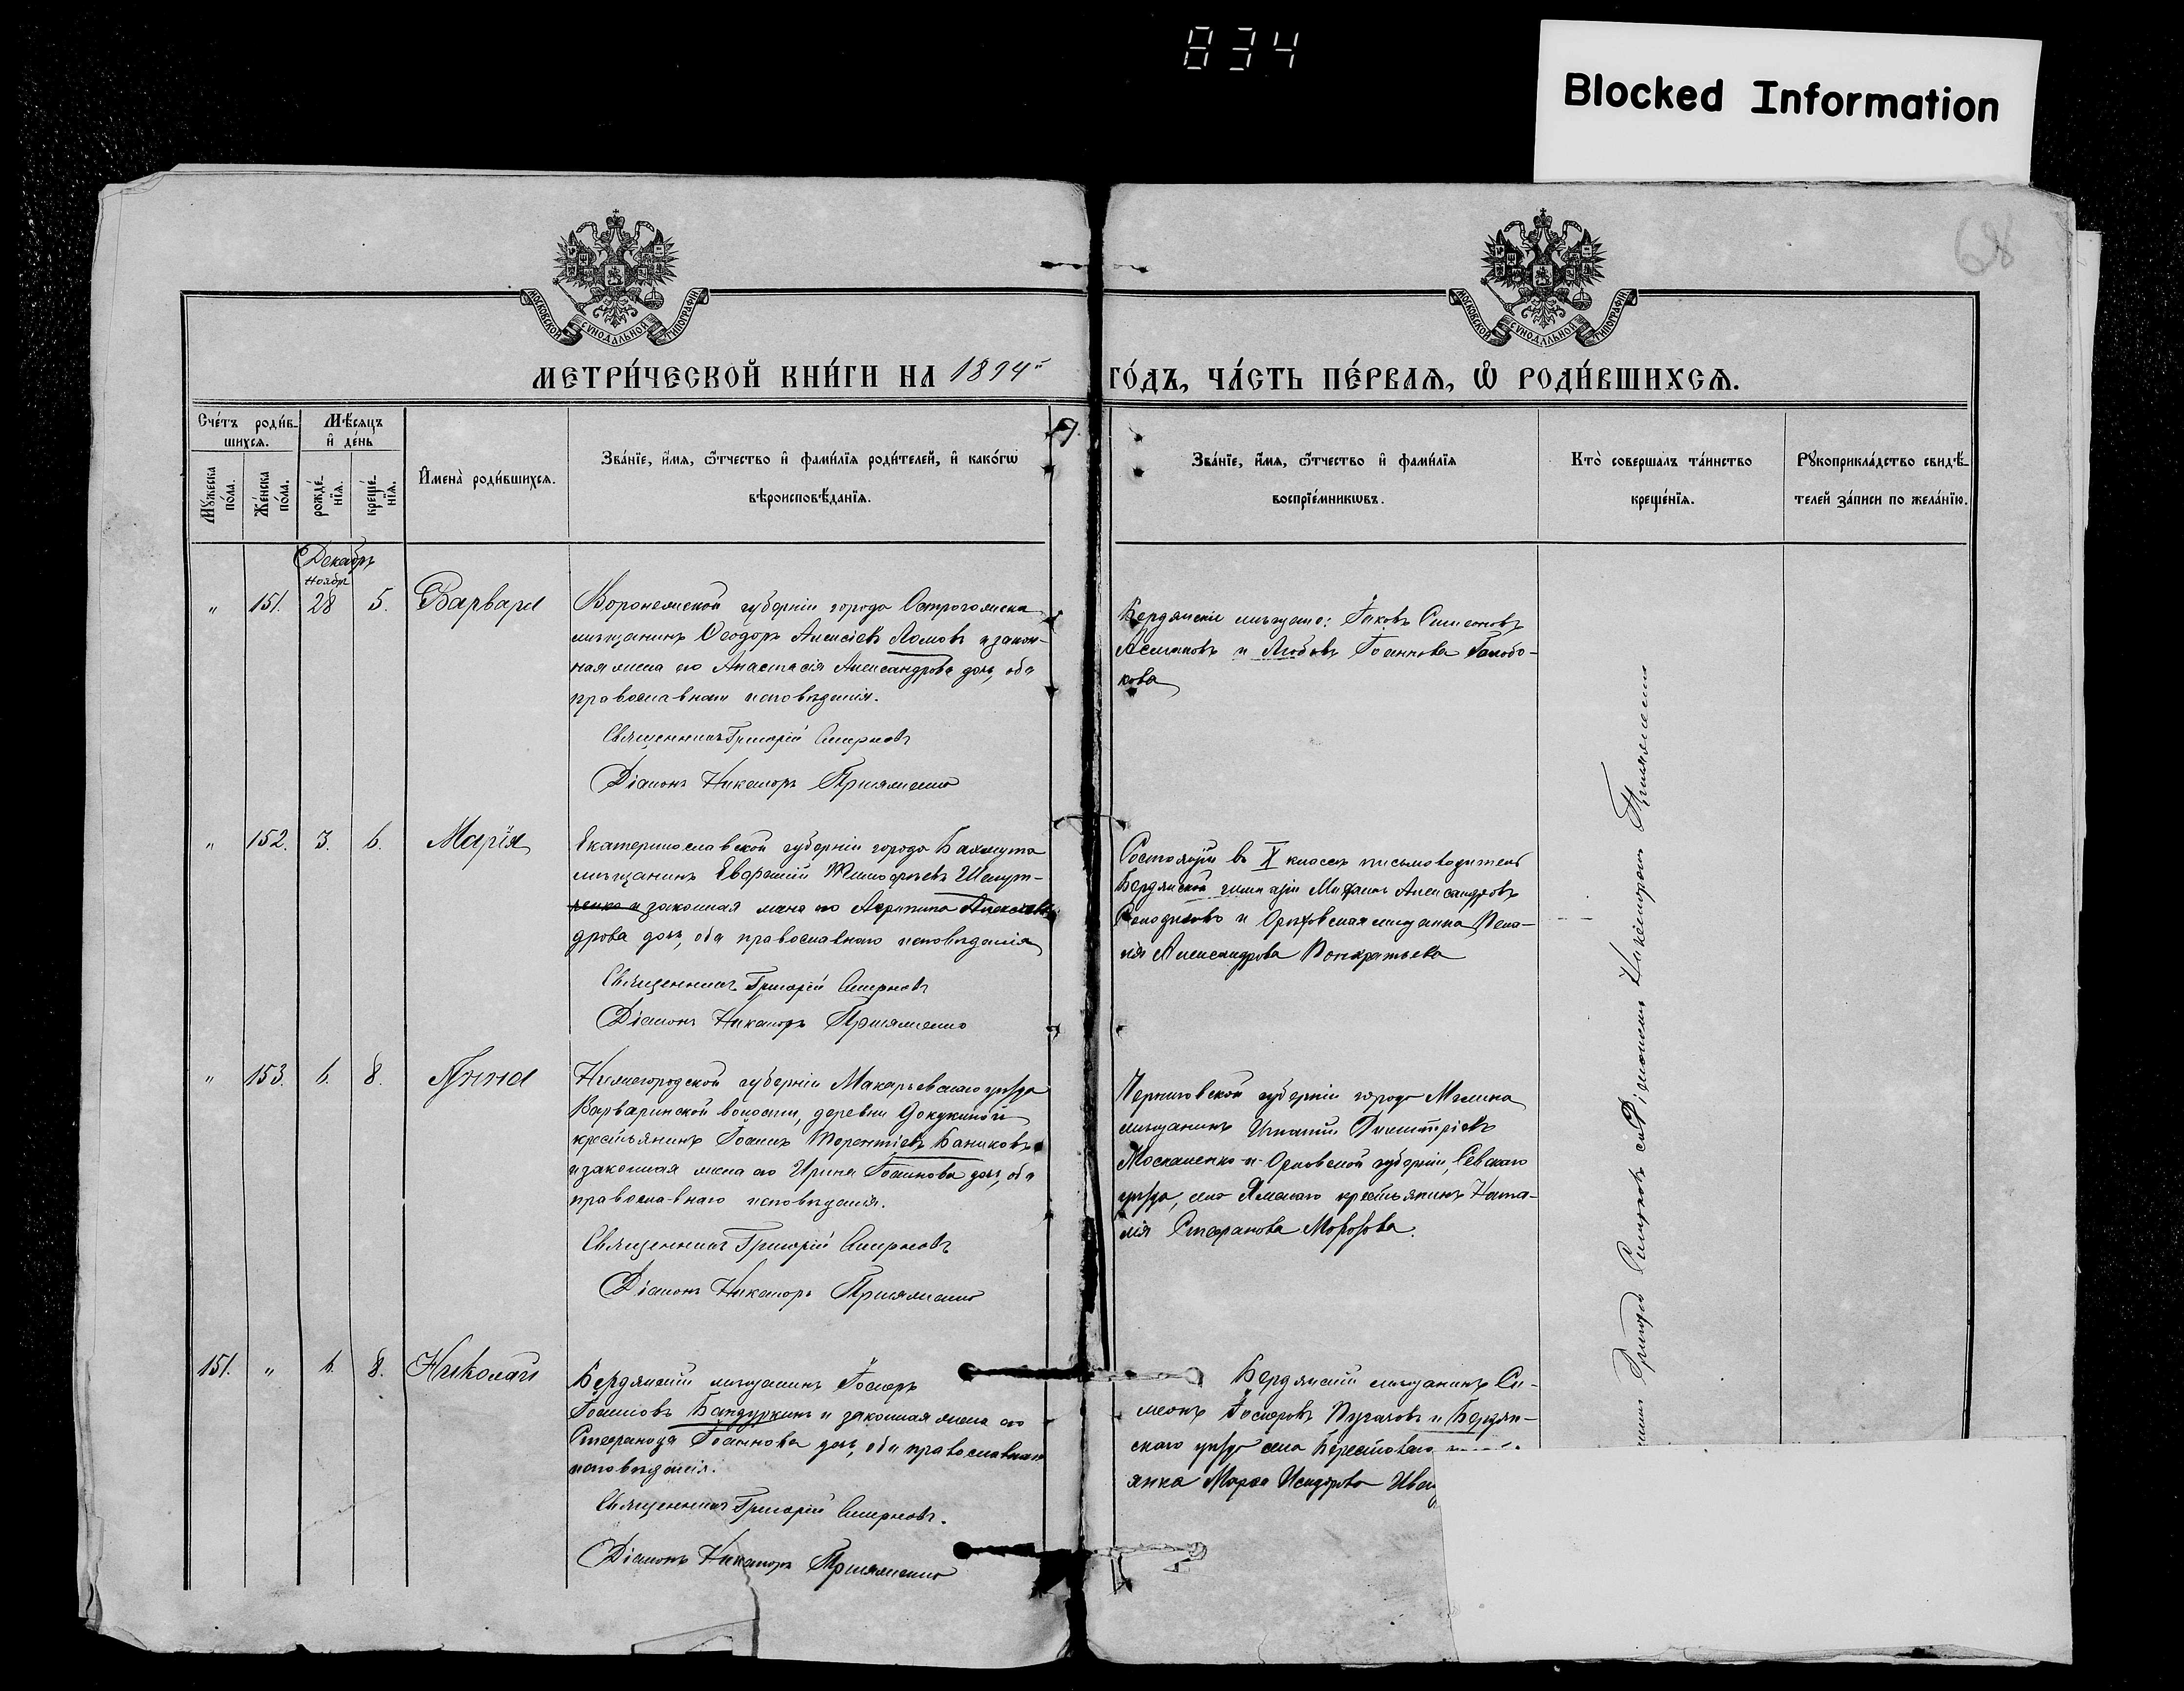 834
Blocked Information
68
МОСКОВСКОЙ СУНОДАЛЬНОЙ ТИПОГРАФІИ
МОСКОВСКОЙ СУНОДАЛЬНОЙ ТИПОГРАФІИ
МЕТРИ́ЧЕСКОЙ КНИ́ГИ НА 1894й ГО́ДЪ, ЧА́СТЬ ПЕ́РВАѦ, Ѽ РОДИ́ВШИХСѦ.
Сче́тъ роди́вшихсѧ.
Мꙋ́жеска по́ла.
Же́нска по́ла.
Мѣ́сѧцъ и҆ де́нь
рожде́нїѧ.
креще́нїѧ.
И҆мена̀ роди́вшихсѧ.
Зва́нїе, и҆́мѧ, ѻ҆́тчество и҆ фами́лїѧ роди́телей, и҆ како́гѡ
вѣроисповѣ́данїѧ.
Зва́нїе, и҆́мѧ, ѻ҆́тчество и҆ фами́лїѧ
воспрїе́мникѡвъ.
Кто̀ соверша́лъ та́инство
креще́нїѧ.
Рꙋкоприкла́дство свидѣ́-
телей за́писи по жела́нїю.
Декабрь
Ноябрь
" 151. 28 5. Варвара
Воронежской губерніи города Острогожска
мѣщанинъ Ѳеодоръ Алексіевъ Ломовъ и закон-
ная жена его Анастасія Александрова дочь, оба
православнаго исповѣданія.
Священникъ Григорій Смирновъ
Діаконъ Никаноръ Пригоженко
Бердянскіе мѣщане: Іаковъ Симеоновъ
и Любовь Іоаннова
кова
" 152. 3. 6. Марія
Екатеринославской губерніи города Бахмута
мѣщанинъ Евфимій
и законная жена его Агрипина Алексан-
дрова дочь, оба православнаго исповѣданія
Священникъ Григорій Смирновъ
Діаконъ Никаноръ Пригоженко
Состоящій въ X классѣ письмоводитель
Бердянской гимназіи Александровъ
и Орѣховская мѣщанка Пела-
гія Александрова Кондратьева
" 153. 6. 8. Анна
Нижегородской губерніи Макарьевскаго уѣзда
Варваринской волости, деревни
крестьянинъ Іоаннъ Терентіевъ Баниковъ
и законная жена его Ирина Іоаннова дочь, оба
православнаго исповѣданія.
Священникъ Григорій Смирновъ
Діаконъ Никаноръ Пригоженко
Черниговской губерніи города Мглина
мѣщанинъ Игнатій Димитріевъ
Москаленко и Орловской губерніи, Севскаго
уѣзда, села Ямскаго Ната-
лія Стефанова Морозова.
151. " 6. 8. Николай
Бердянскій мѣщанинъ Іосифъ
Іоанновъ Бандуркинъ и законная жена его
Стефанида Іоаннова дочь, оба православнаго
исповѣданія.
Священникъ Григорій Смирновъ.
Діаконъ Никаноръ Пригоженко
Бердянскій мѣщанинъ Си-
меонъ Іосифовъ Пугачовъ и Бердян-
скаго уѣзда села Берестоваго
янка Марѳа Исидорова
Григорій Смирновъ съ Діакономъ Никаноромъ